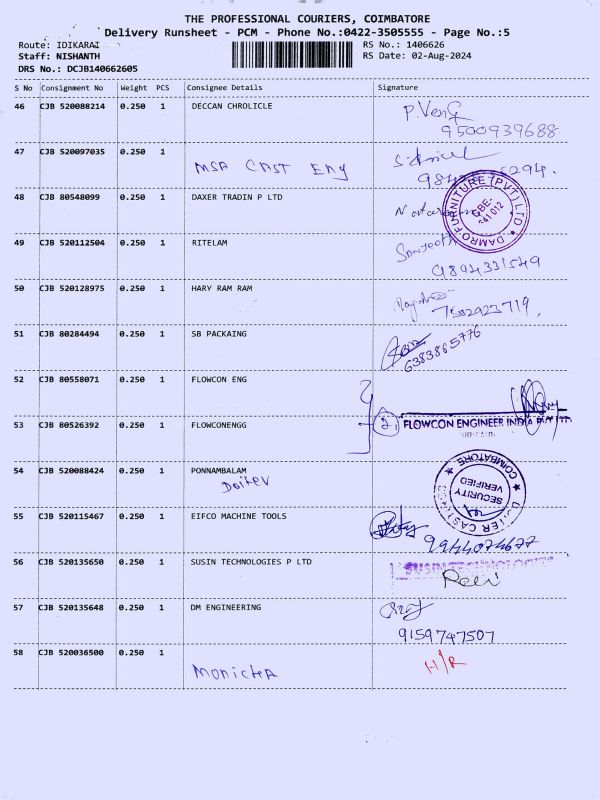 THE PROFESSIONAL COURIERS, COIMBATORE
Delivery Runsheet - PCM - Phone No.:0422-3505555 - Page No.:5
Route: IDIKARAI RS No.: 1406626
Staff: NISHANTH RS Date: 02-Aug-2024
DRS No.: DCJB140662605
S No Consignment No Weight PCS Consignee Details Signature
46 CJB 520088214 0.250 1 DECCAN CHROLICLE
9500939688
47 CJB 520097035 0.250 1
MSA CAST ENG
48 CJB 80548099 0.250 1 DAXER TRADIN P LTD
DAMRO FURNITURE (PVT) LTD
CBE-
641 012
49 CJB 520112504 0.250 1 RITELAM
9894331549
50 CJB 520128975 0.250 1 HARY RAM RAM
7502923719.
51 CJB 80284494 0.250 1 SB PACKAING
6383865776
52 CJB 80558071 0.250 1 FLOWCON ENG
53 CJB 80526392 0.250 1 FLOWCONENGG
2. FLOWCON ENGINEER INDIA
54 CJB 520088424 0.250 1 PONNAMBALAM
Doiter
COIMBATORE
SECURITY
VERIFIED
55 CJB 520115467 0.250 1 EIFCO MACHINE TOOLS
9944074677
56 CJB 520135650 0.250 1 SUSIN TECHNOLOGIES P LTD
57 CJB 520135648 0.250 1 DM ENGINEERING
9159747507
58 CJB 520036500 0.250 1
H/R